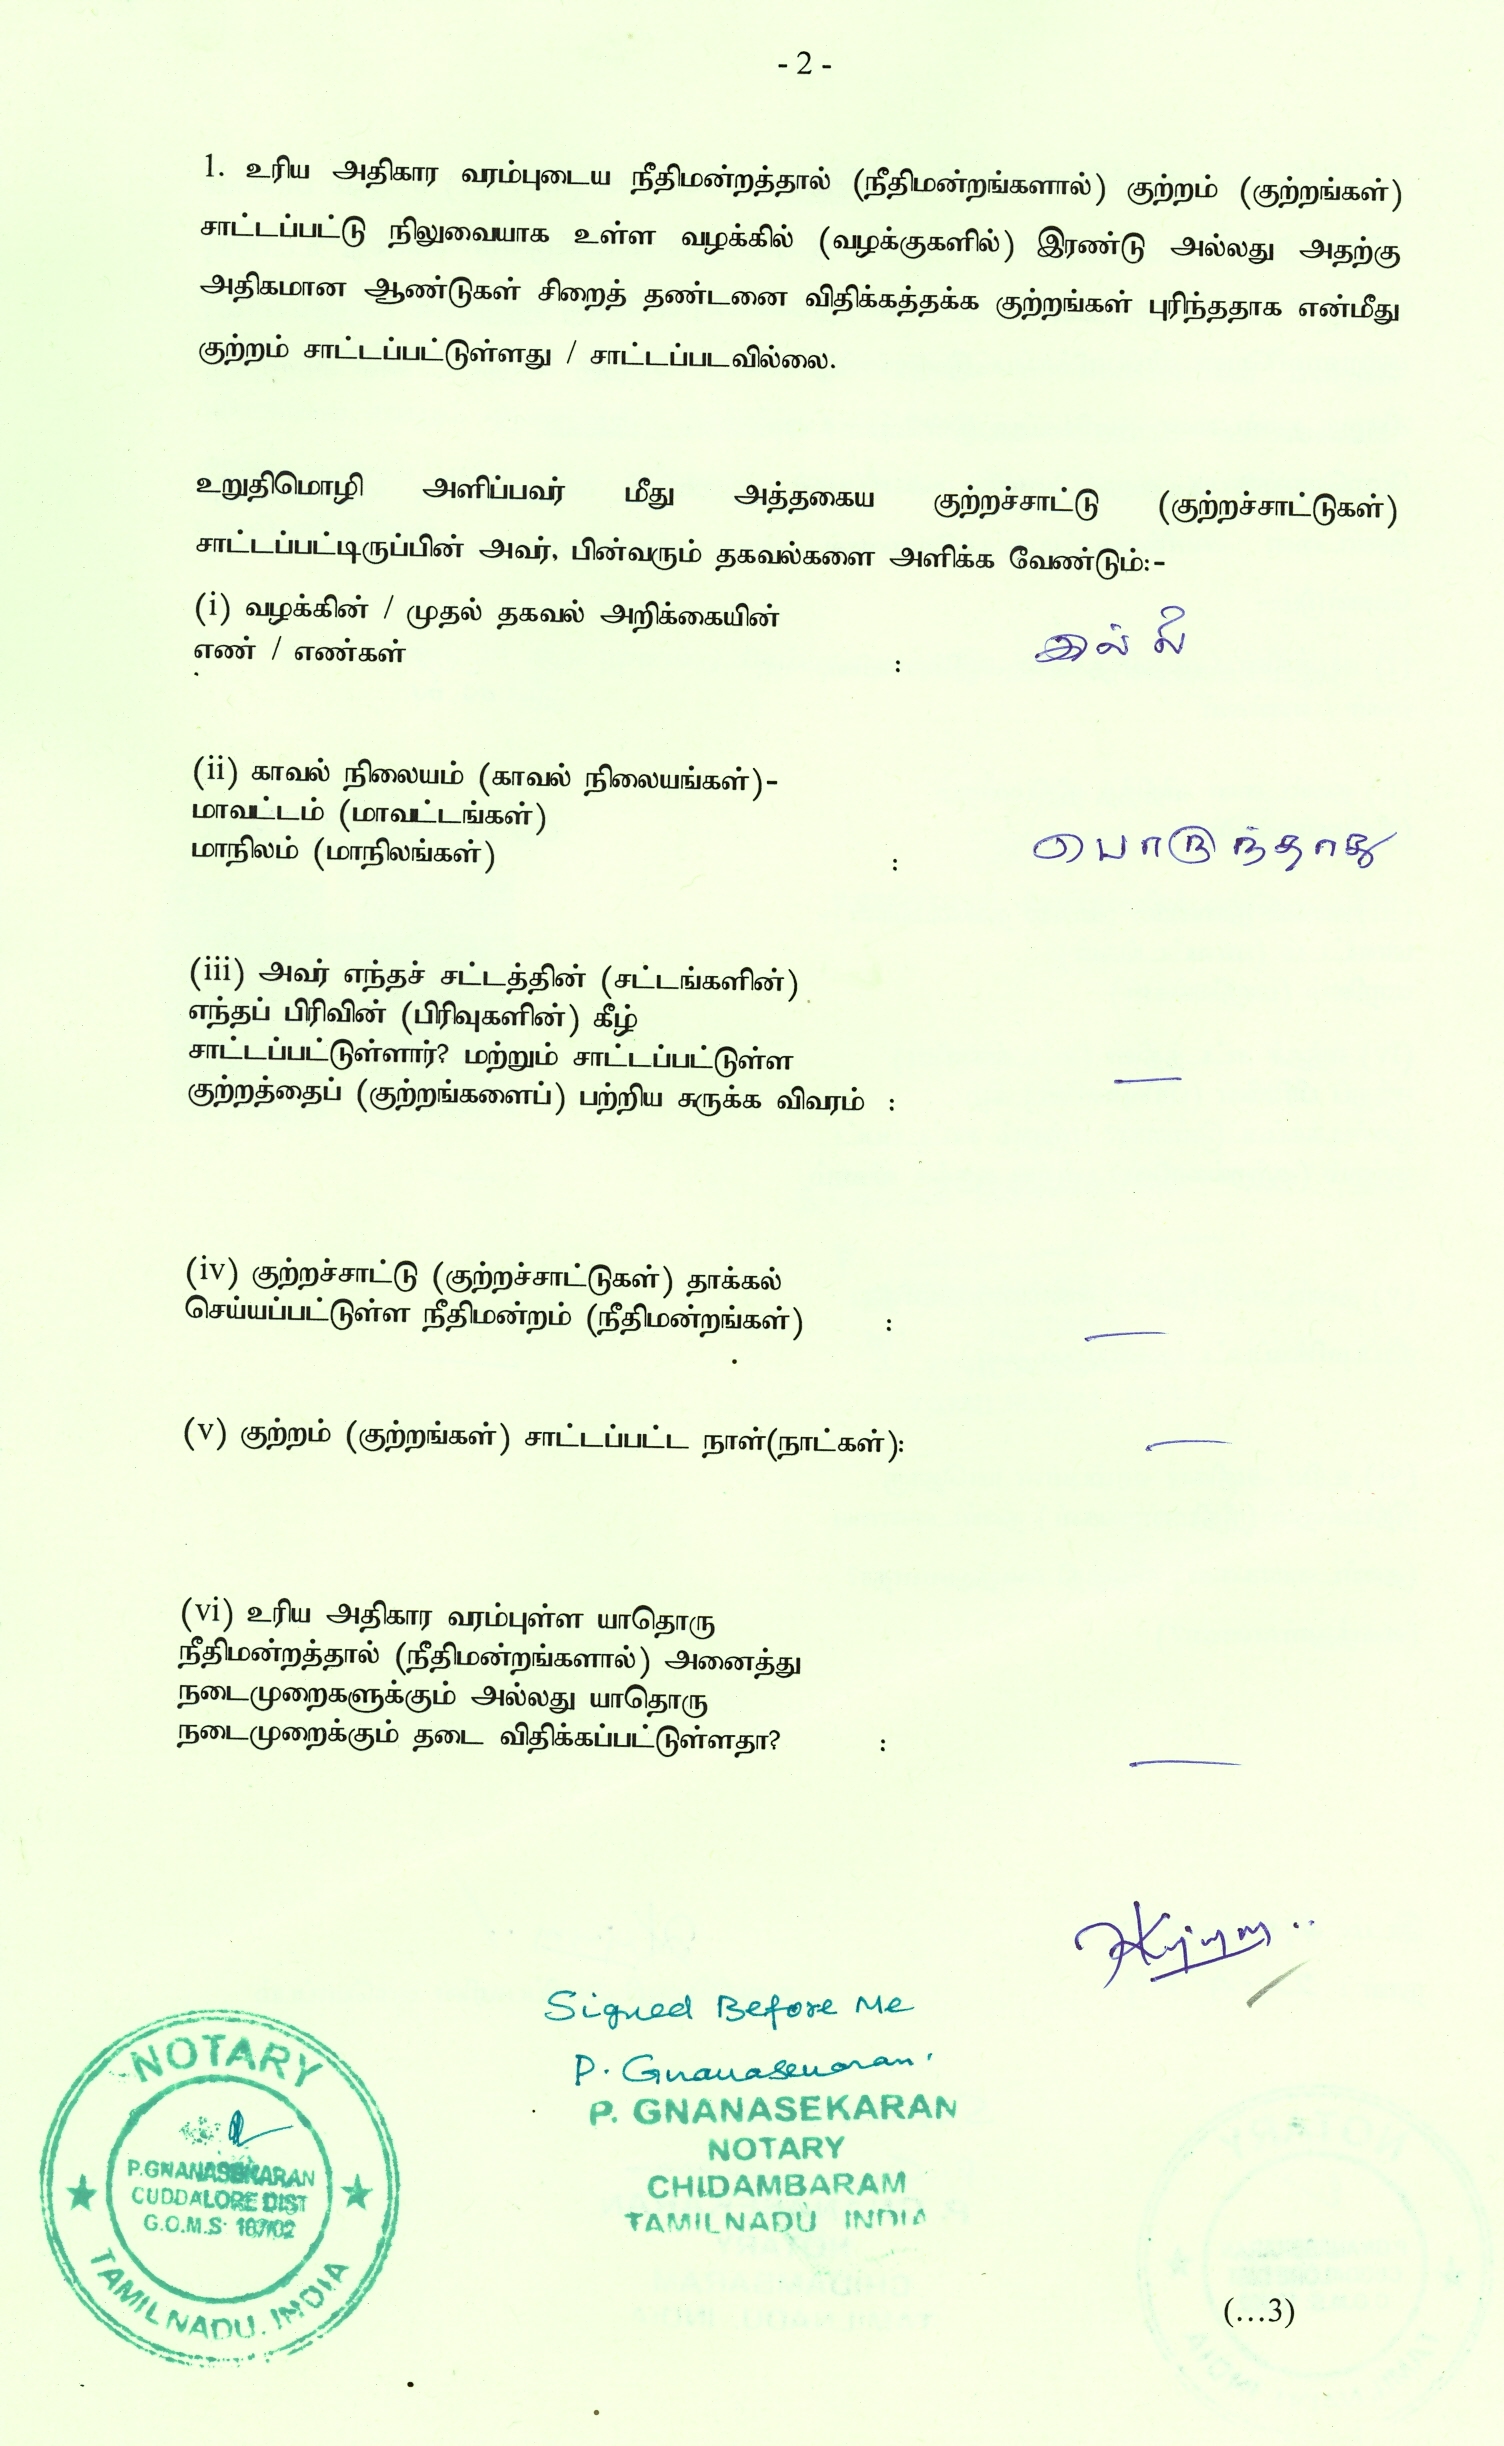 - 2 -
1. உரிய அதிகார வரம்புடைய நீதிமன்றத்தால் (நீதிமன்றங்களால்) குற்றம் (குற்றங்கள்)
சாட்டப்பட்டு நிலுவையாக உள்ள வழக்கில் (வழக்குகளில்) இரண்டு அல்லது அதற்கு
அதிகமான ஆண்டுகள் சிறைத் தண்டனை விதிக்கத்தக்க குற்றங்கள் புரிந்ததாக என்மீது
குற்றம் சாட்டப்பட்டுள்ளது / சாட்டப்படவில்லை.
உறுதிமொழி அளிப்பவர் மீது அத்தகைய குற்றச்சாட்டு (குற்றச்சாட்டுகள்)
சாட்டப்பட்டிருப்பின் அவர், பின்வரும் தகவல்களை அளிக்க வேண்டும்:-
(i) வழக்கின் / முதல் தகவல் அறிக்கையின்
எண் / எண்கள் :
(ii) காவல் நிலையம் (காவல் நிலையங்கள்)-
மாவட்டம் (மாவட்டங்கள்)
மாநிலம் (மாநிலங்கள்) : பொருந்தாது
(iii) அவர் எந்தச் சட்டத்தின் (சட்டங்களின்)
எந்தப் பிரிவின் (பிரிவுகளின்) கீழ்
சாட்டப்பட்டுள்ளார்? மற்றும் சாட்டப்பட்டுள்ள
குற்றத்தைப் (குற்றங்களைப்) பற்றிய சுருக்க விவரம் : —
(iv) குற்றச்சாட்டு (குற்றச்சாட்டுகள்) தாக்கல்
செய்யப்பட்டுள்ள நீதிமன்றம் (நீதிமன்றங்கள்) : —
(v) குற்றம் (குற்றங்கள்) சாட்டப்பட்ட நாள்(நாட்கள்): —
(vi) உரிய அதிகார வரம்புள்ள யாதொரு
நீதிமன்றத்தால் (நீதிமன்றங்களால்) அனைத்து
நடைமுறைகளுக்கும் அல்லது யாதொரு
நடைமுறைக்கும் தடை விதிக்கப்பட்டுள்ளதா? : —
Signed Before Me
P. Gnanasekaran.
P. GNANASEKARAN
NOTARY
CHIDAMBARAM
TAMILNADU INDIA
NOTARY
P.GNANASEKARAN
CUDDALORE DIST
G.O.M.S 187/02
TAMILNADU. INDIA
(...3)